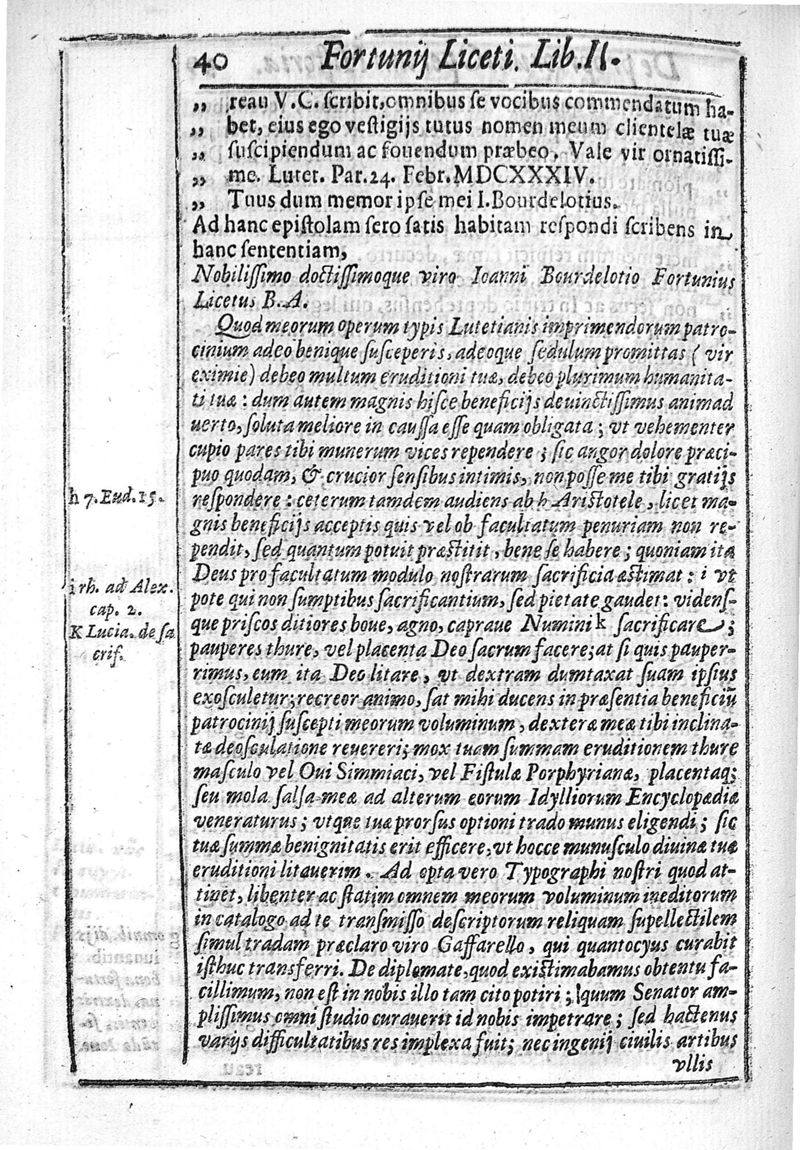 40 Fortunij Liceti. Lib. II.
„ reau V. C. scribit, omnibus se vocibus commendatum ha-
„ bet, eius ego vestigijs tutus nomen meum clientelæ tuæ
„ suscipiendum ac fouendum præbeo. Vale vir ornatissi-
„ me. Lutet. Par. 24. Febr. MDCXXXIV.
„ Tuus dum memor ipse mei I. Bourdelotius.
Ad hanc epistolam sero satis habitam respondi scribens in
hanc sententiam,
Nobilissimo doctissimoque viro Ioanni Bourdelotio Fortunius
Licetus B. A.
Quod meorum operum typis Lutetianis imprimendorum patro-
cinium adeo benique susceperis, adeoque sedulum promittas (vir
eximie) debeo multum eruditioni tuæ, debeo plurimum humanita-
ti tuæ: dum autem magnis hisce beneficijs deuinctissimus animad
uerto, soluta meliore in caussa esse quam obligata; vt vehementer
cupio pares tibi munerum vices rependere; sic angor dolore præci-
puo quodam, & crucior sensibus intimis, non posse me tibi gratijs
h 7. Eud. 15. respondere: ceterum tamdem audiens ab h Aristotele, licet ma-
gnis beneficijs acceptis quis vel ob facultatum penuriam non re-
pendit, sed quantum potuit præstitit, bene se habere; quoniam ita
i rh. ad Alex. Deus pro facultatum modulo nostrarum sacrificia æstimat: i vt
cap. 2. pote qui non sumptibus sacrificantium, sed pietate gaudet: vidensʃ-
K Lucia. de sa que priscos ditiores boue, agno, capraue Numini k sacrificare;
crif. pauperes thure, vel placenta Deo sacrum facere; at si quis pauper-
rimus, eum ita Deo litare, vt dextram dumtaxat suam ipsius
exosculetur; recreor animo, sat mihi ducens in præsentia beneficiū
patrocinij suscepti meorum voluminum, dexteræ meæ tibi inclina-
tæ deosculatione reuereri; mox tuam summam eruditionem thure
masculo vel Oui Simmiaci, vel Fistulæ Porphyrianæ, placentaq;
seu mola salsa meæ ad alterum eorum Idylliorum Encyclopædiæ
veneraturus; vtque tuæ prorsus optioni trado munus eligendi; sic
tuæ summæ benignitatis erit efficere, vt hocce munusculo diuinæ tuæ
eruditioni litauerim. Ad opta vero Typographi nostri quod at-
tinet, libenter ac statim omnem meorum voluminum ineditorum
in catalogo ad te transmisso descriptorum reliquam supellectilem
simul tradam præclaro viro Gaffarello, qui quantocyus curabit
isthuc transferri. De diplomate, quod existimabamus obtentu fa-
cillimum, non est in nobis illo tam cito potiri; quum Senator am-
plissimus omni studio curauerit id nobis impetrare; sed hactenus
varijs difficultatibus res implexa fuit; nec ingenij ciuilis artibus
vllis